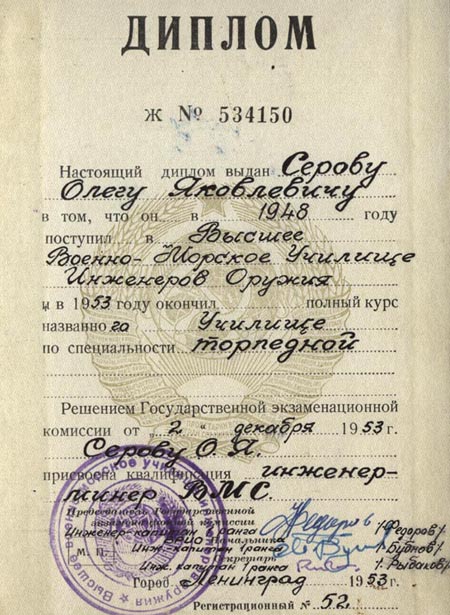 ДИПЛОМ
Ж № 534150
Настоящий диплом выдан Серову
Олегу Яковлевичу
в том, что он в 1948 году
поступил в Высшее
Военно-Морское Училище
Инженеров Оружия
и в 1953 году окончил полный курс
названного Училище
по специальности торпедной
Решением Государственной экзаменационной
комиссии от „2" декабря 1953 г.
Серову О.Я.
присвоена квалификация инженер-
минер ВМС.
Председатель Государственной
экзаменационной комиссии
Инженер-капитан 1 ранга Федоров /Федоров/
ВРИО Начальника
М. П. Инж-капитан 1 ранга /Буднов/
Секретарь
Инж. капитан ранга /Рыдаков/
Город Ленинград 1953 г.
Регистрационный № 52.